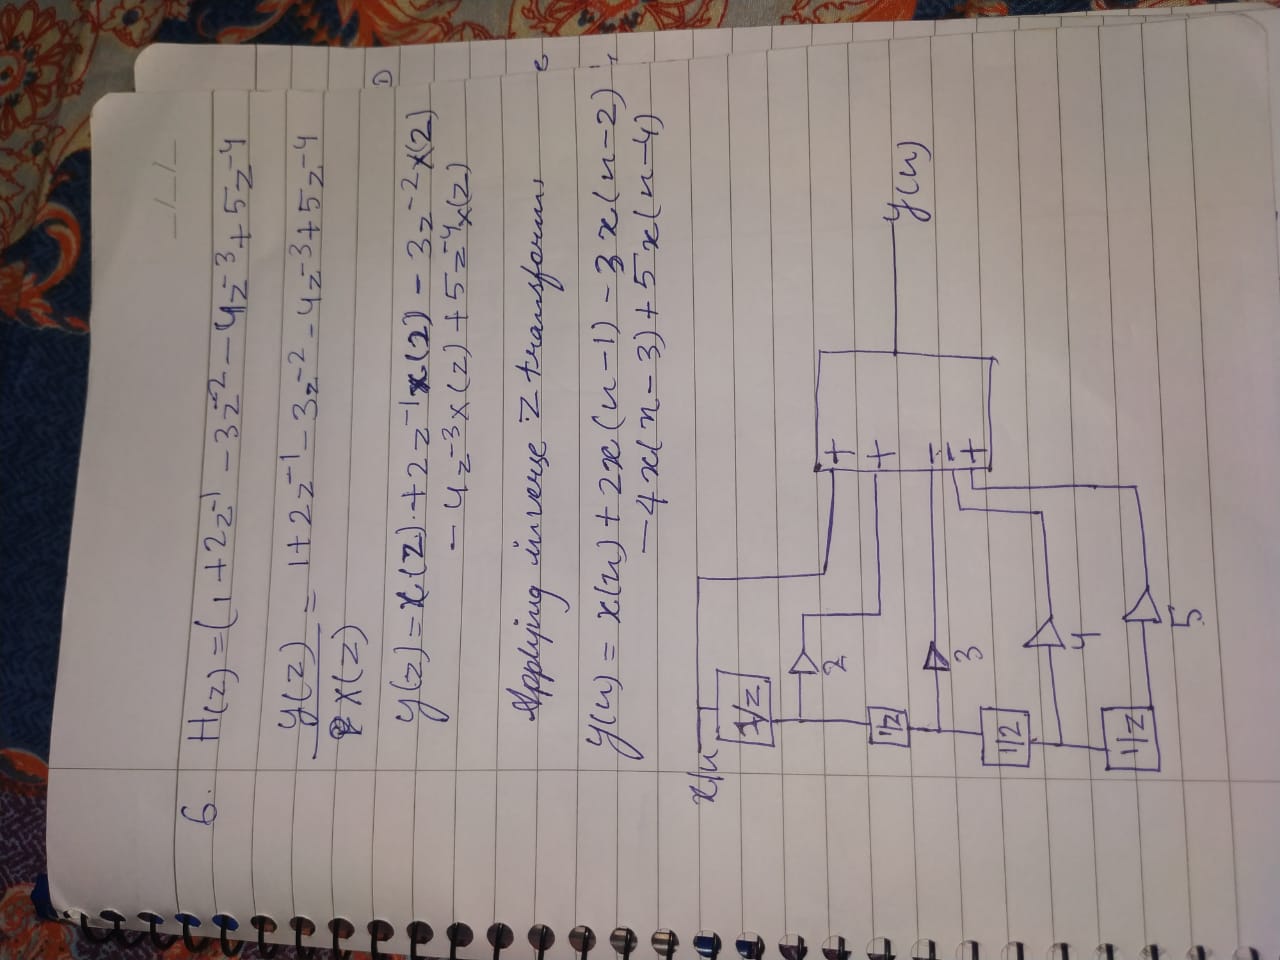 _/_/_
6. H(z) = (1 + 2z⁻¹ - 3z⁻² - 4z⁻³ + 5z⁻⁴
y(z) = 1 + 2z⁻¹ - 3z⁻² - 4z⁻³ + 5z⁻⁴
X(z)
y(z) = x(z) · + 2z⁻¹x(z) - 3z⁻²x(z)
- 4z⁻³x(z) + 5z⁻⁴x(z)
Applying inverse Z transform,
y(n) = x(n) + 2x(n-1) - 3x(n-2)
-4x(n-3) + 5x(n-4)
x/n
1/z
2
+
1/z
+
y(n)
3
-
-
+
1/z
4
1/z
5
D